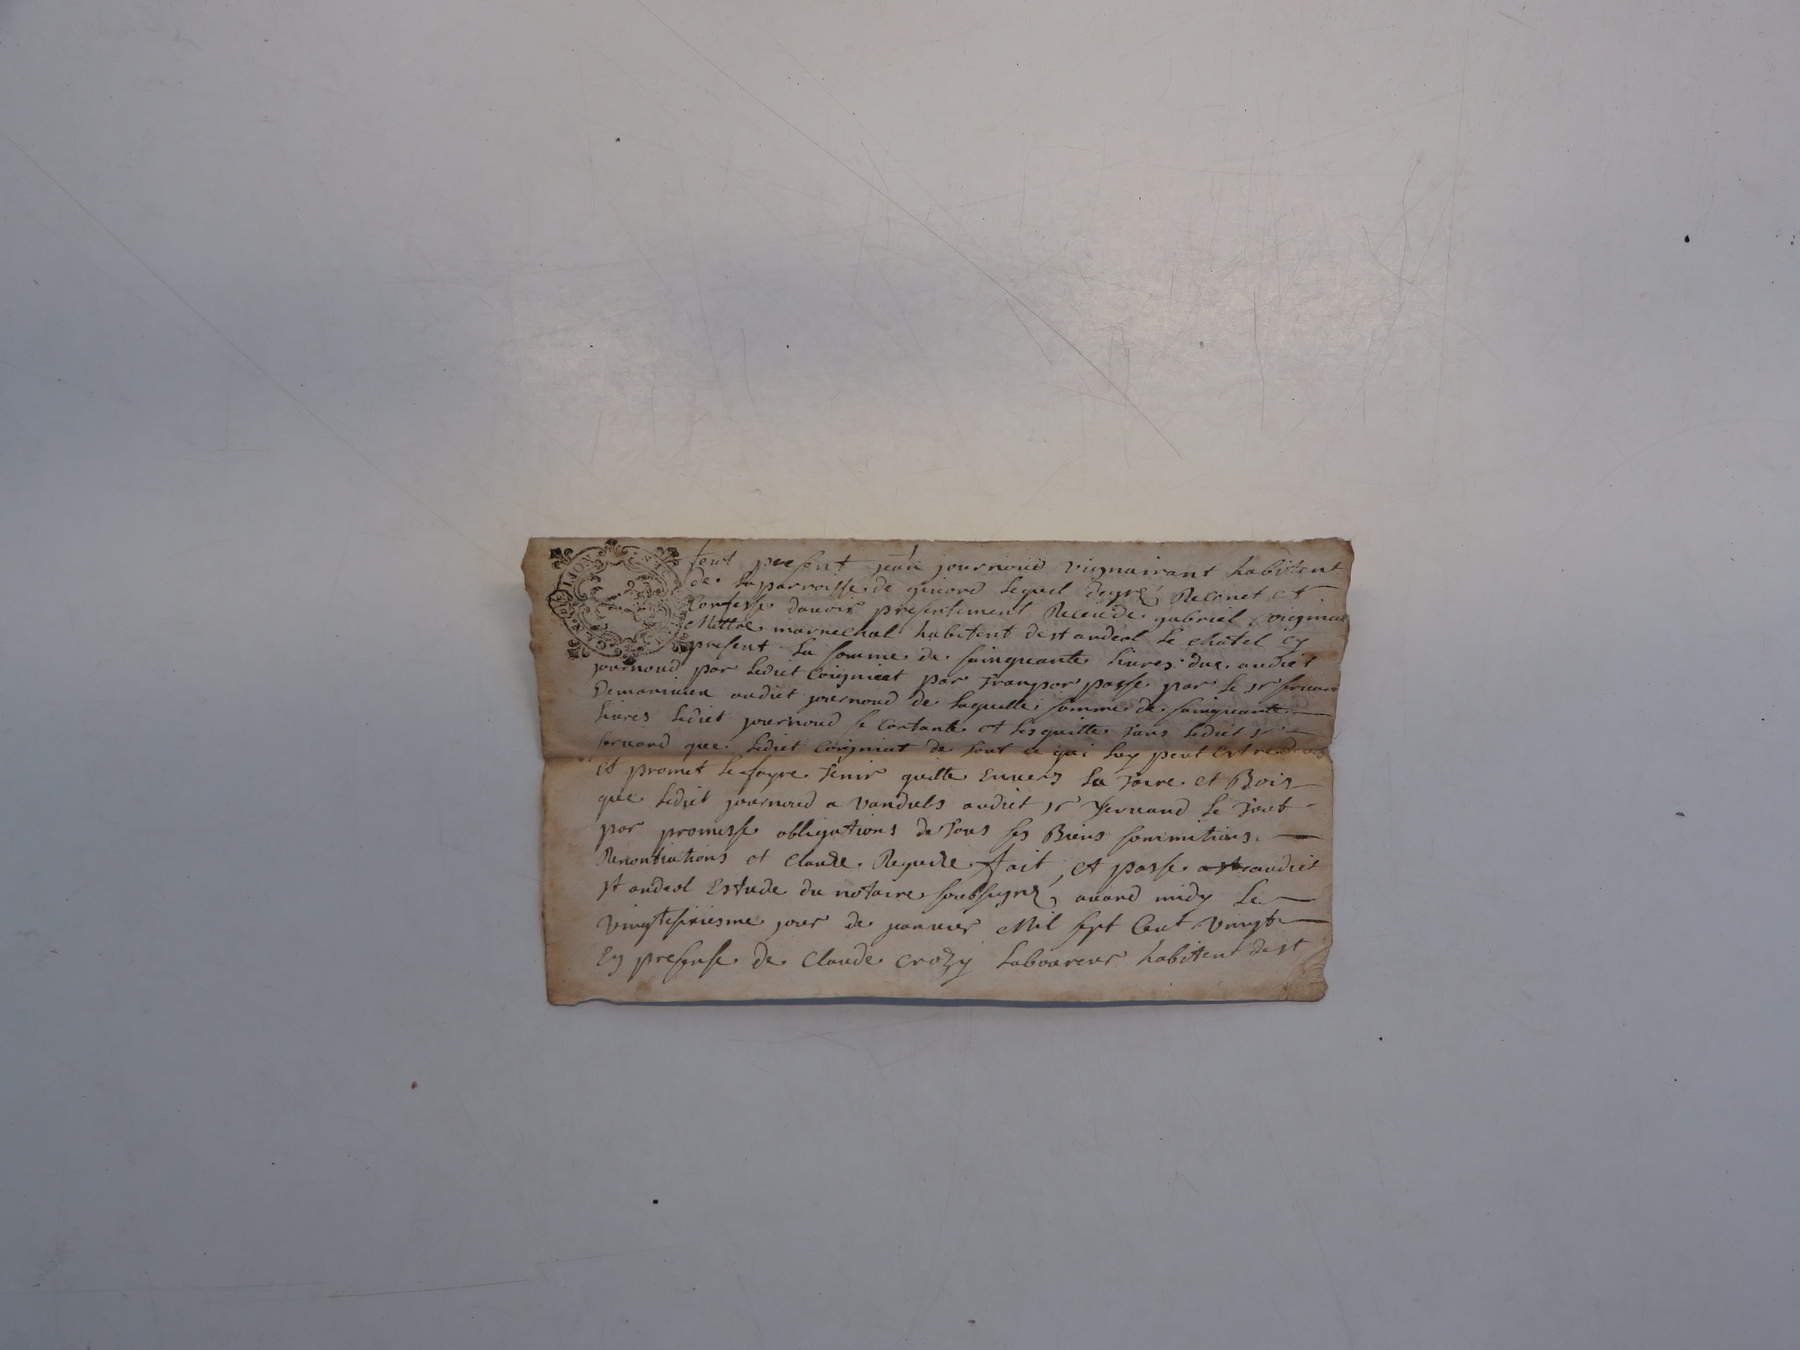 feut present jean journoud vignairant habitent
de la parroisse de givord lequel de gré Reconet et
Confesse davoir presentement Receu de gabriel Coigniat
Mittre marechal habitent de st andeol le chatel cy
present la somme de sainquante livres due audict
journoud par ledict Coigniat par Transpor passé par le sr
audict journoud de laquelle somme de sainquante
livres ledict journoud se Contante et les quitte Tans ledict sr
que ledict Coigniat de tout ce qui luy peut Estre
Et promet le fayre Tenir quitte Envers la Taire et Bois
que ledict journoud a vandubs audict sr Fernand le Tout
par promesse obligations de Tous ses Biens
Renontiations et Claude Requise fait, et passé audict
st andeol Estude du notaire soubsigné, avand midy le
vingt sixiesme jour de janvier Mil sept Cent vingt
En presense de Claude Crozy laboureur habitent de st